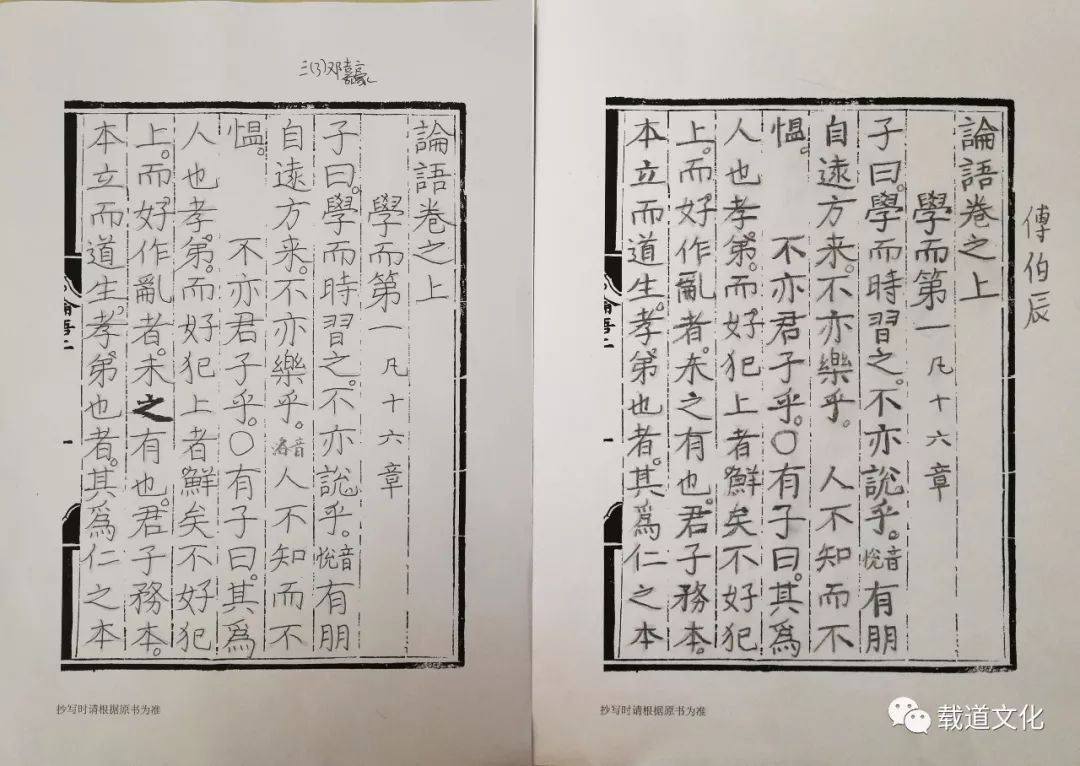 三(3)邓嘉豪
論語卷之上
學而第一凡十六章
子曰。學而時習之。不亦說乎。音悅有朋
自遠方来。不亦樂乎。音洛人不知而不
愠。不亦君子乎。〇有子曰。其爲
人也孝。弟。而好犯上者鮮矣不好犯
上。而好作亂者。未之有也。君子務本。
本立而道生。孝。弟也者。其爲仁之本
論語二
一
抄写时请根据原书为准
傅伯辰
論語卷之上
學而第一凡十六章
子曰。學而時習之。不亦說乎。音悅有朋
自遠方来。不亦樂乎。人不知而不
愠。不亦君子乎。〇有子曰。其爲
人也孝。弟。而好犯上者鮮矣不好犯
上。而好作亂者。未之有也。君子務本。
本立而道生。孝。弟也者。其爲仁之本
論語二
一
抄写时请根据原书为准
载道文化